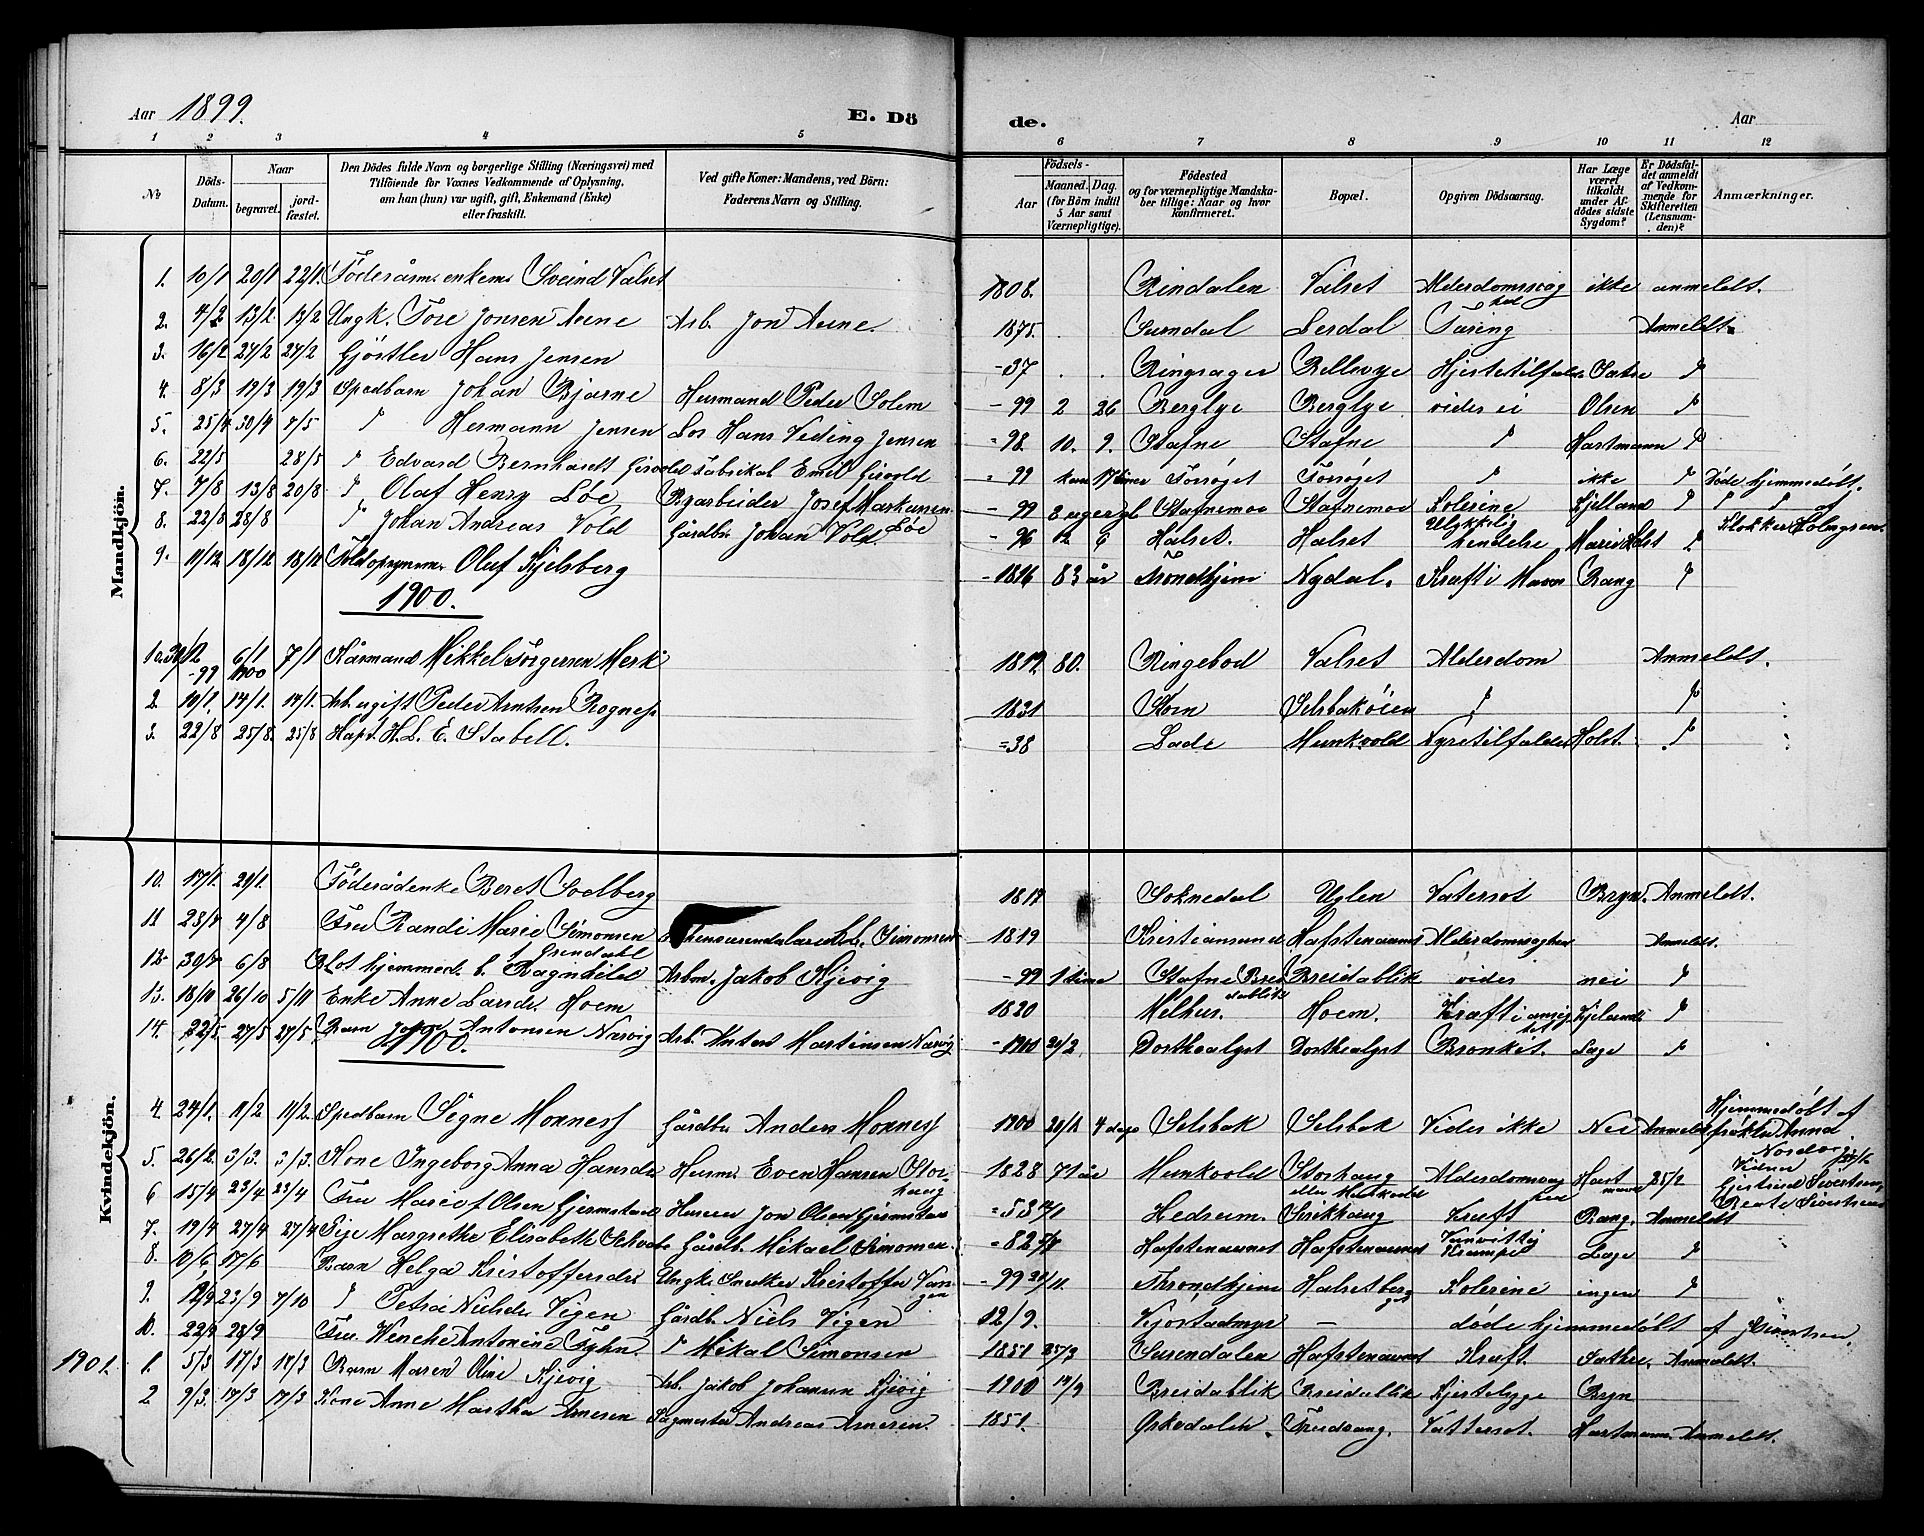 Aar 1899.
E. Dö
de.
Aar
1 2 3 4 5 6 7 8 9 10 11 12
No
Döds-Datum.
Naar
begravet.
jord-fæstet.
Den Dödes fulde Navn og borgerlige Stilling (Næringsvei) med
Tilföiende for Voxnes Vedkommende af Oplysning,
om han (hun) var ugift, gift, Enkemand (Enke)
eller fraskilt.
Ved gifte Koner: Mandens, ved Börn:
Faderens Navn og Stilling.
Födsels-
Aar
Maaned. Dag.
(for Börn indtil
5 Aar samt
Værnepligtige).
Födested
og for værnepligtige Mandska-
ber tillige: Naar og hvor
konfirmeret.
Bopæl.
Opgiven Dödsaarsag.
Har Læge
været
tilkaldt
under Af-
dödes sidste
Sygdom?
Er Dödsfal-
det anmeldt
af Vedkom-
mende for
Skifteretten
(Lensman-
den)?
Anmærkninger.
Mandkjön.
1. 10/1 20/1 22/1. Föderåsm. enkem. Sveind Valset 1808. Rindalen Valset Alderdomssvaghed ikke anmeldt.
2. 4/2 13/2 13/2 Ungk. Tore Jonsen Aune Arb. Jon Aune. 1875. Surndal Lerdal Tæring Anmeldt
3. 16/2 24/2 24/2 Gjörtler Hans Jensen -37 Ringsager Bellevye Hjertetilfælde Sætre "
4. 8/3 19/3 19/3 Spedbarn Johan Bjarne Husmand Peder Solem -99 2 26 Berglye Berglye vides ei Olsen "
5. 25/4 30/4 7/5 " Hermann Jensen Los Hans Veding Jensen -98. 10. 9. Stafne Stafne " Hartmann "
6. 22/5 28/5 " Edvard Bernhardt Girvold Fabrikab. Emil Girvold -99 kun 17 timer Forsöget Forsöget " ikke " Döde hjemmedöbt.
7. 7/8 13/8 20/8 " Olaf Henry Löe Byarbeider Josef Markussen Löe -99 8 uger gl Stafnemoe Stafnemoe Kolerine Kjelland " " " af
8. 22/8 28/8 " Johan Andreas Vold Gårdbr. Johan Vold -96 12 6 Halset. Halset Ulykkelig hendelse Marie Holst " Klokker Holmgren.
9. 11/12 18/12 18/12 Toldopsynsm. Olaf Kjelsberg -1816 83 år Trondhjem Nydal. Kræft i Maven Rang "
1900.
1. 30/12-99 6/1 1900 7/1 Kårmand Mikkel Torgersen Merk 1819 80. Ringebod Valset Alderdom Anmeldt.
2. 10/1. 14/1. 14/1. Arb. ugift Peder Arntsen Rognes 1831 Horn Selsbakören " "
3. 22/8 25/8. 25/8 Kapt. H. L. E. Stabell. -38 Lade Munkvold Nyretilfælde Holst. "
Kvindekjön.
10. 17/1. 20/1. Föderådenke Beret Soelberg 1817 Soknedal Uglen Vatersot Bryn. Anmeldt.
11 28/7 4/8 Fru Randi Marie Simonsen Simonsen 1819 Kristiansund Hafstenaunet Alderdomssvaghed Anmeldt.
12. 30/7 6/8 hjemmed. b. Ragnhild Arbm. Jakob Kjevig -99 1 time Stafne Breidablik Breidablik vides nei "
13. 18/10 26/10 5/11 Enke Anne Larsd. Hoem 1820 Melhus. Hoem. Kræft i ansigtet Kjelland "
14. 22/5 27/5 27/5 Barn Antonsen Narvig Arb. Anton Martinsen Narvig -1900 20/2 Dorthealyst Dorthealyst Bronkit. Lage "
1900.
4. 24/1. 11/2 11/2. Spedbarn Signe Mornes Gårdbr Anders Mornes 1900 20/1 4 dage Selsbak Selsbak Vides ikke Nei Anmeldt Hjemmedöbt af fröken Anna Nordvig
5. 26/2. 3/3. 3/3. Kone Ingeborg Anna Hansdr Husm. Even Hansen Storhaug 1828 71 år Munkvold Storhaug eller Munkvold Alderdomssvaghed Hartmann 25/2
6 15/4 23/4 23/4 Fru Marie Olsen Gjermstad Huseier Jon Olsen Gjermstad -58 Hedreim. Kræft Rang. Anmeldt
7. 19/4 27/4 27/4 Pige Margrethe Elisabeth Schvabe Gårdb. Mikael Simonsen. -82 Hafstenaunet Hafstenaunet Krampe Lage "
8. 10/6 17/6 Barn Helga Kristoffersdr Ungk. Snedker Kristoffer Vangen -99 Throndhjem Halsetberget Kolerine ingen "
9. 12/9 23/9 7/10 " Petra Nielsdr Vigen Gårdb. Niels Vigen 12/9. Vejostadmyr — döde hjemmedöbt af
10. 22/9 28/9 Fru Wenche Antonine Fyhn " Mikal Simonsen 1851 25/3 Surendalen Hafstenaunet Kræft. Sæthre. Anmeldt.
1901. 1. 5/3 17/3 17/3 Barn Maren Oline Kjevig Arb. Jakob Johansen Kjevig 1900 19/9 Breidablik Breidablik Hjertelyge Bryn
2 9/3. 17/3 17/3 Kone Anne Martha Arnesen Sagmester Andreas Arnesen. 1851. Orkedalen. Vattersot. Hartmann. Anmeldt.